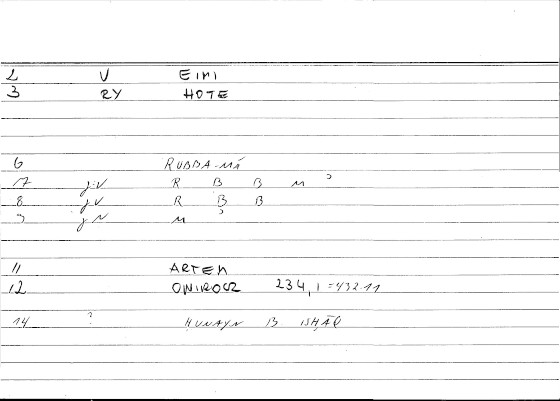 2 V EIMI
3 RY HOTE
6 RUBBA-MĀ
17 j:V R B B M ʾ
8 jV R B B
9 jN M ʾ
11 ARTEM
12 ONIROCR 234,1 = 432.11
14 ? HUNAYN B ISHĀQ